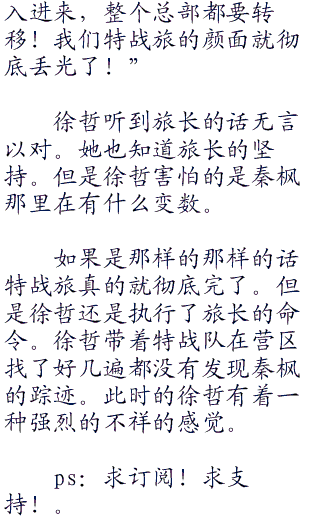 入进来，整个总部都要转
移！我们特战旅的颜面就彻
底丢光了！”
徐哲听到旅长的话无言
以对。她也知道旅长的坚
持。但是徐哲害怕的是秦枫
那里在有什么变数。
如果是那样的那样的话
特战旅真的就彻底完了。但
是徐哲还是执行了旅长的命
令。徐哲带着特战队在营区
找了好几遍都没有发现秦枫
的踪迹。此时的徐哲有着一
种强烈的不祥的感觉。
ps：求订阅！求支
持！。